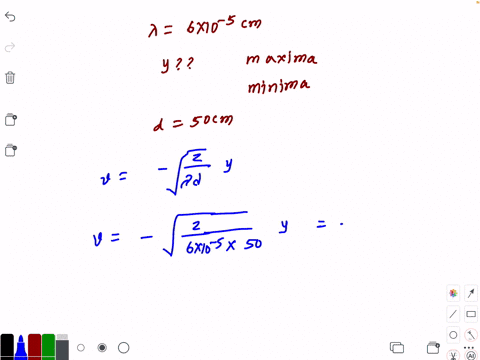 λ = 6×10⁻⁵ cm
y ?? maxima
minima
d = 50cm
v = -√(2/λd) y
v = -√(2/(6×10⁻⁵ × 50)) y = .